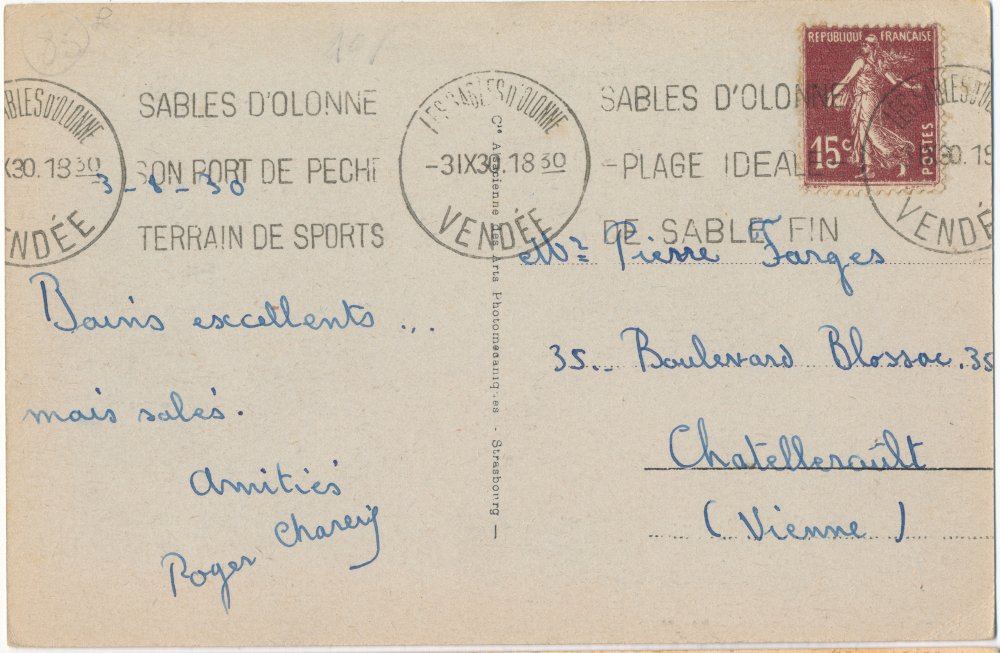 85
RÉPUBLIQUE FRANÇAISE
15c
POSTES
SABLES D'OLONNE
SON PORT DE PECHE
TERRAIN DE SPORTS
LES SABLES D'OLONNE
-3IX30.18 30
VENDÉE
SABLES D'OLONNE
-PLAGE IDEALE
DE SABLE FIN
SABLES D'OLONNE
IX30.18 30
NDÉE
LES SABLES D'O
30.19
VENDÉ
Cie Alsacienne des Arts Photomécaniques - Strasbourg —
Bains excellents ...
mais salés.
Amitiés
Roger
Mr Pierre Farges
35.. Boulevard Blossac. 35
Chatellerault
(Vienne)